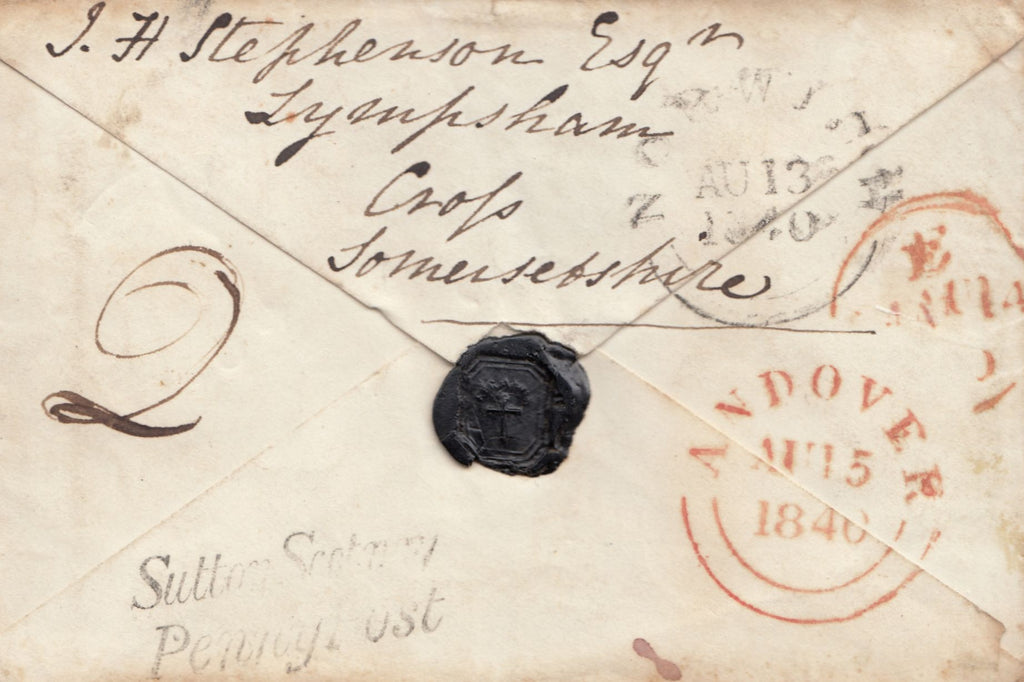 J. H Stephenson Esqr
Lympsham
Croſs
Somersetshire
AU 13
1840
E
AU 14
2
ANDOVER
AU 15
1840
Sutton Scotney
Penny Post